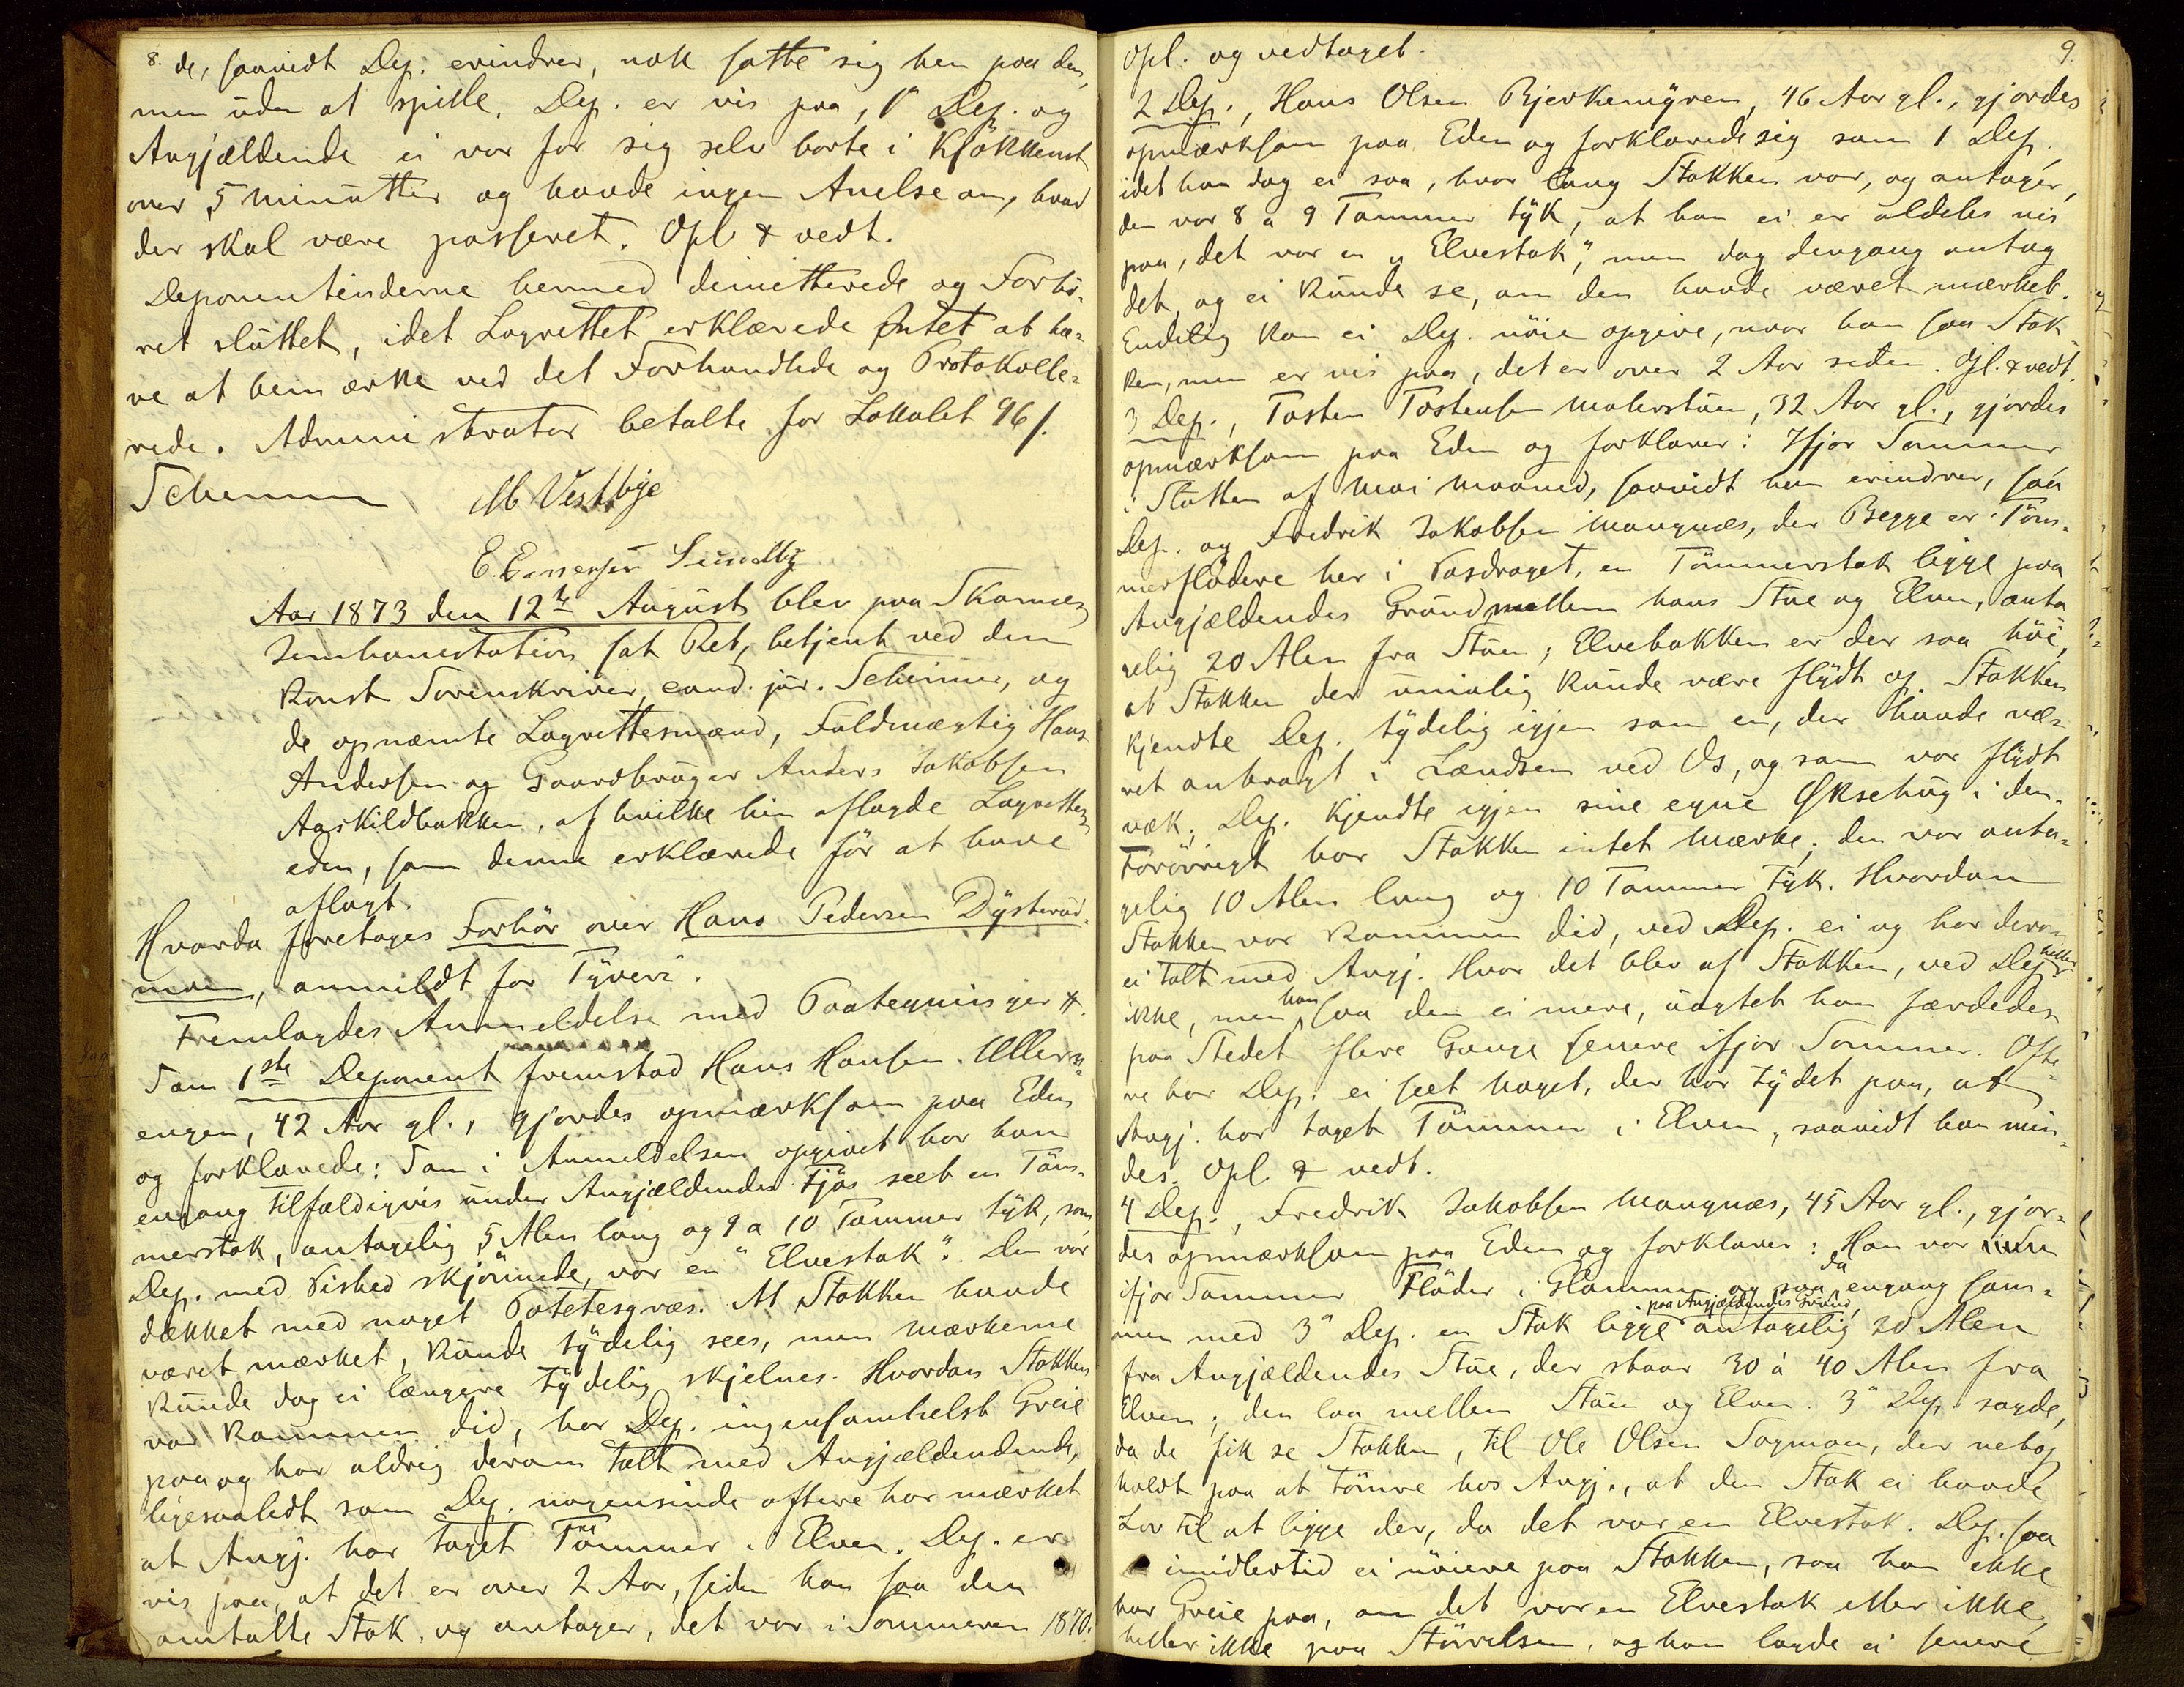 8.
de, saavidt Dep. erindrer, nok satte sig hen paa den,
men uden at spille. Dep. er vis paa, 1ᵉ Dep. og
Angjældende ei var for sig selv borte i Kjökkenet
over 5 minutter og havde ingen Anelse om, hvad
der skal være passeret. Opl & vedt.
Deponentinderne hermed dimitterede og Forhö-
ret sluttet, idet Lagrettet erklærede Intet at ha-
ve at bemærke ved det Forhandlede og Protokolle-
rede. Administrator betalte for Lokalet 96 ſ.
Schimmer M Vestbye
E. Einersen Sundby
Aar 1873 den 12te August blev paa Skarnes
Jernbanestation sat Ret, betjent ved den
Konst. Sorenskriver, cand. jur. Schimmer, og
de opnævnte Lagrettesmænd, Fuldmægtig Hans
Andersen og Gaardbruger Anders Jakobsen
Aaskildbakken, af hvilke hin aflagde Lagrettes-
eden, som denne erklærede för at have
aflagt.
Hvorda foretoges Forhör over Hans Pedersen Dysterud-
moen, anmeldt for Tyveri.
Fremlagdes Anmeldelse med Paategninger #.
Som 1ste Deponent fremstod Hans Hansen Ullern-
engen, 42 Aar gl., gjordes opmærksom paa Eden
og forklarede: Som i Anmeldelsen opgivet har han
engang tilfældigvis under Angjældendes Fjøs seet en Töm-
merstok, antagelig 5 Alen lang og 9 a 10 Tommer tyk, som
Dep. med Vished skjönnede, var en "Elvestok". Den var
dækket med noget Potetesgræs. At Stokken havde
været mærket, kunde tydelig sees, men Mærkerne
kunde dog ei længere tydelig skjelnes. Hvordan Stokken
var kommen did, har Dep. ingensomhelst Greie
paa og har aldrig derom talt med Angjældendende,
ligesaalidt som Dep. nogensinde oftere har mærket
at Angj. har taget Tömmer i Elven. Dep. er
vis paa, at det er over 2 Aar, siden han saa den
omtalte Stok, og antager, det var i Sommeren 1870.
9.
Opl. og vedtaget.
2 Dep., Hans Olsen Bjerkemyren, 46 Aar gl., gjordes
opmærksom paa Eden og forklarede sig som 1 Dep.,
idet han dog ei saa, hvor lang Stokken var, og antager,
den var 8 a 9 Tommer tyk, at han ei er aldeles vis
paa, det var en "Elvestok", men dog dengang antog
det, og ei kunde se, om den havde været mærket.
Endelig kan ei Dep. nöie opgive, naar han saa Stok-
ken, men er vis paa, det er over 2 Aar siden. Opl. & vedt.
3 Dep., Tosten Tostensen Malerstuen, 32 Aar gl., gjordes
opmærksom paa Eden og forklarer: Ifjor Sommer
i Slutten af Mai Maaned, saavidt han erindrer, saa
Dep. og Fredrik Jakobsen Mangnæs, der Begge er Töm-
merflödere her i Vasdraget, en Tömmerstok ligge paa
Angjældendes Grund mellem hans Stue og Elven, anta-
gelig 20 Alen fra Stuen; Elvebakken er der saa höi,
at Stokken der umulig kunde være flydt op. Stokken
kjendte Dep. tydelig igjen som en, der havde væ-
ret anbragt i Lændsen ved Os, og som var flydt
væk. Dep. kjendte igjen sine egne Øksehug i den.
Forövrigt har Stokken intet Mærke; den var anta-
gelig 10 Alen lang og 10 Tommer tyk. Hvordan
Stokken var kommen did, ved Dep. ei og har derom
ei talt med Angj. Hvor det blev af Stokken, ved Dep. heller
ikke, men han saa den ei mere, uagtet han færdedes
paa Stedet flere Gange senere ifjor Sommer. Ofte-
re har Dep. ei seet Noget, der har tydet paa, at
Angj. har taget Tömmer i Elven, saavidt han min-
des. Opl & vedt.
4 Dep., Fredrik Jakobsen Mangnæs, 45 Aar gl., gjor-
des opmærksom paa Eden og forklarer: Han var
ifjor Sommer Flöder i Glommen og saa da engang sam-
men med 3ᵉ Dep. en Stok ligge paa Angjældendes Grund, antagelig 20 Alen
fra Angjældendes Stue, der staar 30 à 40 Alen fra
Elven; den laa mellem Stuen og Elven. 3ᵉ Dep. sagde,
da de fik se Stokken, til Ole Olsen Sagmoen, der netop
holdt paa at tömre hos Angj., at den Stok ei havde
Lov til at ligge der, da det var en Elvestok. Dep. saa
imidlertid ei nöiere paa Stokken, saa han ikke
har Greie paa, om det var en Elvestok eller ikke,
heller ikke paa Störrelsen, og han lagde ei senere